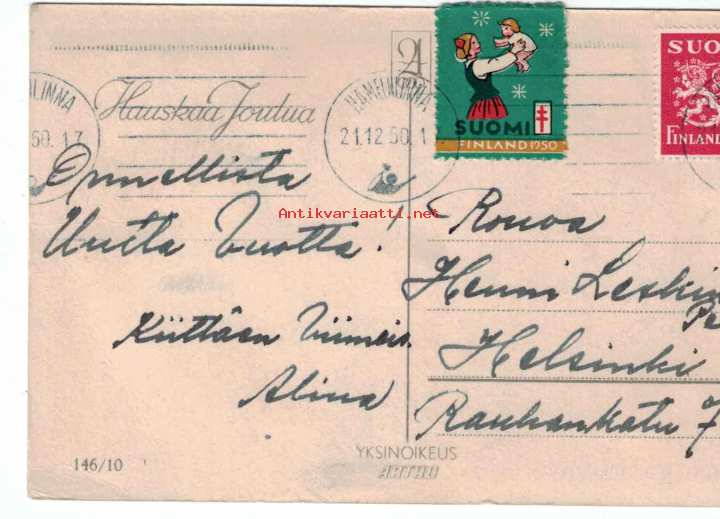 LINNA
50.17
Hauskaa Joulua
HÄMEENLINNA
21.12.50.1
SUOMI
FINLAND 1950
SUO
FINLAND
Antikvariaatti.net
Onnellista
Uutta Vuotta!
Kiittäen Viimeis.
Alina
Rouva
Henni Leski
Pe
Helsinki
Rauhankatu 7
YKSINOIKEUS
146/10